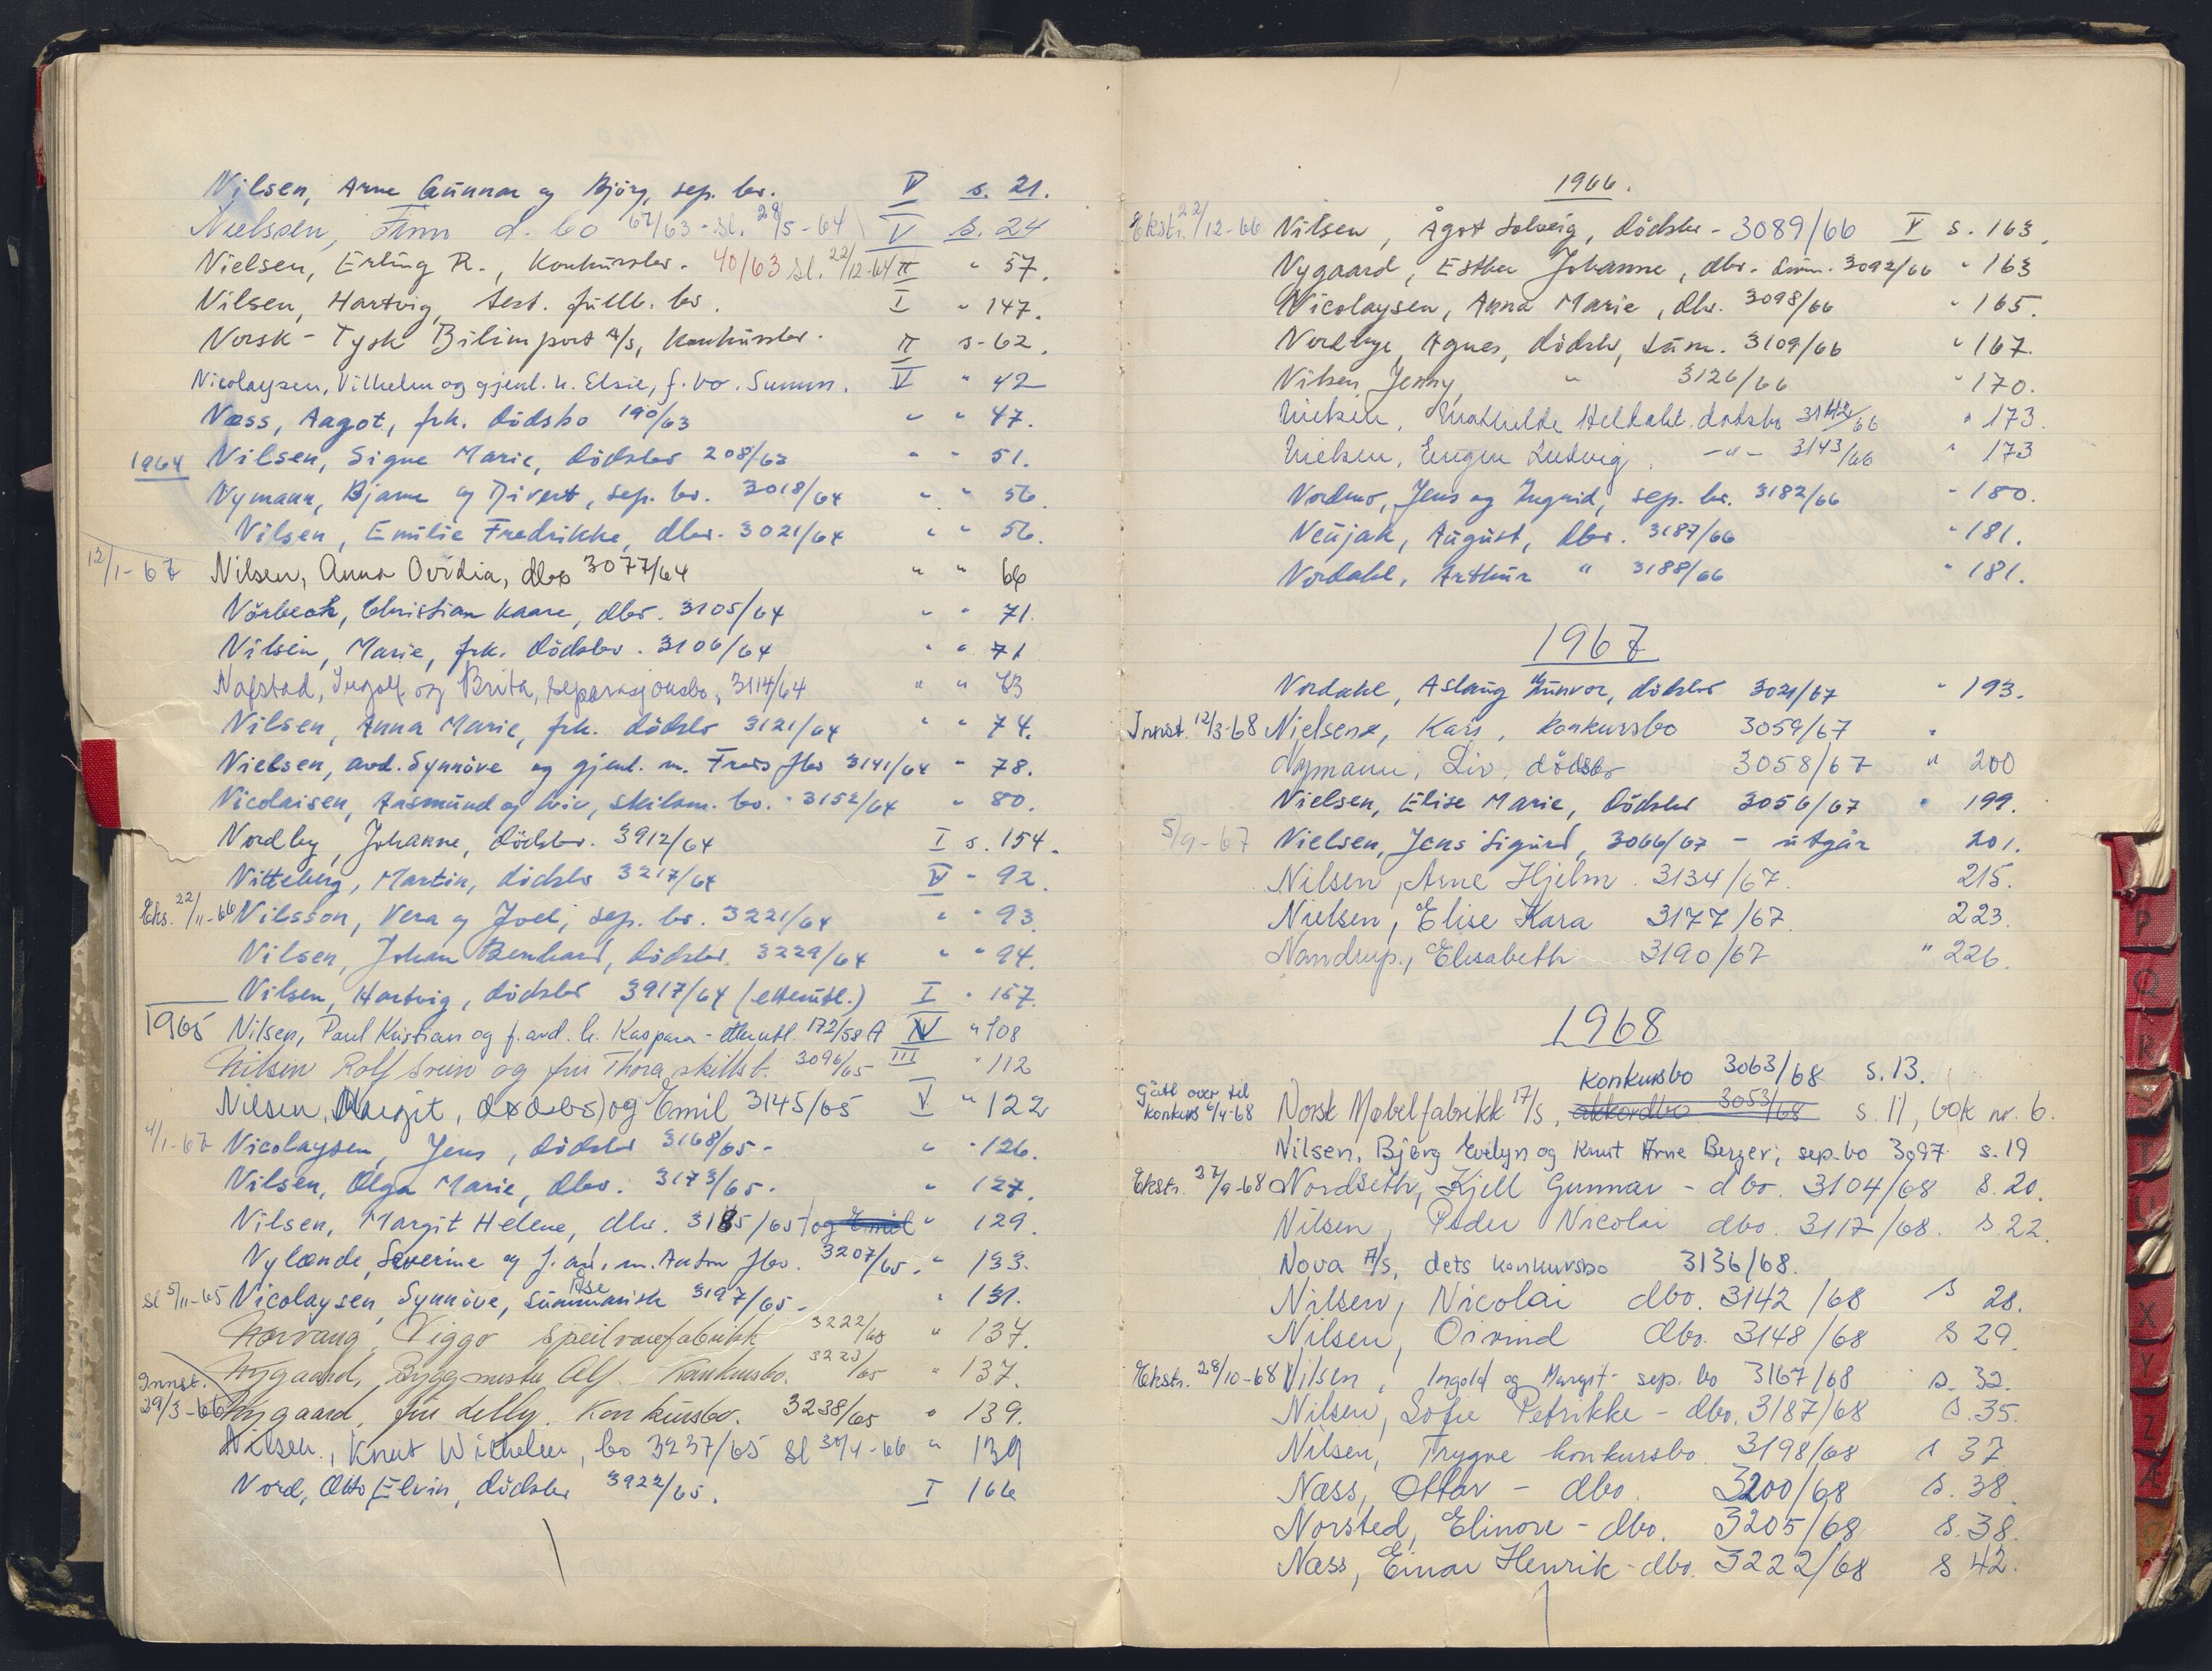 Nilsen, Arne Gunnar og Bjørg, sep. bo. V s. 21.
Nielssen, Finn d. bo 67/63 - sl. 28/5-64 V s. 24
Nielsen, Erling R., Konkursbo. 40/63 sl. 22/12-64 II " 57.
Nilsen, Hartvig, test. fullb. bo. I " 147.
Norsk-Tysk Bilimport A/s, Konkursbo. II s. 62.
Nicolaysen, Vilhelm og gjenl. h. Elsie, f. bo. Summ. V " 42
Næss, Aagot, frk. dödsbo 190/63 " " 47.
1964 Nilsen, Signe Marie, dödsbo 208/63 " " 51.
Nymann, Bjarne og Divert, sep. bo. 3018/64 " " 56
Nilsen, Emilie Fredrikke, dbo. 3021/64 " " 56.
12/1-67 Nilsen, Anna Ovidia, dbo 3077/64 " " 66
Nörbech, Christian Kaare, dbo. 3105/64 " " 71.
Nilsen, Marie, frk. dödsbo. 3106/64 " " 71
Nafstad, Ingolf og Brita, separasjonsbo, 3114/64 " " 73
Nilsen, Anna Marie, frk. dödsbo 3121/64 " " 74.
Nielsen, avd. Synnöve og gjenl. m. Frats fbo 3141/64 " 78.
Nicolaisen, Aasmund og Liv, skilsm. bo. 3152/64 " 80.
Nordby, Johanne, dödsbo. 3912/64 I s. 154.
Nitteberg, Martin, dödsbo 3217/64 V " 92.
Eks. 22/11-66 Nilsson, Vera og Joel, sep. bo. 3221/64 " " 93
Nilsen, Johan Bernhard, dödsbo. 3229/64 " " 94.
Nilsen, Hartvig, dödsbo 3917/64 (etterutl.) I " 157.
1965 Nilsen, Paul Kristian og f. avd. h. Kaspara - etterutl. 172/58 A IV " 108
Nilsen Rolf Svein og fru Thora skillsb. 3096/65 III " 112
Nilsen, Margit, dødsbo) og Emil 3145/65 V " 122
4/1-67 Nicolaysen, Jens, dödsbo 3168/65 - " " 126.
Nilsen, Olga Marie, dbo. 3173/65. " 127.
Nilsen, Margit Helene, dbo. 3185/65 og Emil " 129.
Nylænde, Severine og f. avd. m. Anton fbo. 3207/65. " 133.
sl 5/11-65 Nicolaysen, Synnöve, Åse summarisk 3197/65 - " 131.
Norvang, Viggo Speilvarefabrikk 3222/65 " 137.
Nygaard, Byggmester Alf. Konkursbo. 3223/65 " 137.
Innst. 29/3-66 Nygaard, fru Lelly. Konkursbo. 3238/65 " 139.
Nilsen, Knut Wilhelm, bo 3237/65 sl 30/4-66 " 139
Nord, Otto Elvin, dödsbo 3922/65. I 166
1966.
Ekstr. 22/12-66 Nilsen, Ågot Solveig, dödsbo - 3089/66 V s. 163.
Nygaard, Esther Johanne, dbo. summ. 3092/66 " 163
Nicolaysen, Anna Marie, dbo. 3098/66 " 165.
Nordbye, Agnes, dödsbo, summ. 3109/66 " 167.
Nilsen, Jenny, " 3126/66 " 170.
Nielsen, Mathilde Heldahl. dødsbo 3142/66 " 173.
Nielsen, Eugen Ludvig, -"- 3143/66 " 173
Nordmo, Jens og Ingrid, sep. bo. 3182/66 " 180.
Neujak, August, dbo. 3187/66 " 181.
Nordahl, Arthur " 3188/66 " 181.
1967
Nordahl, Aslaug Gunvor, dödsbo 3021/67 " 193.
Innst. 12/3-68 Nielsen, Kais, konkursbo 3059/67 "
Nymann, Liv, dödsbo 3058/67 " 200
Nielsen, Elise Marie, dödsbo 3056/67 " 199.
5/9-67 Nielsen, Jens Sigurd, 3066/67 - utgår 201.
Nilsen, Arne Hjelm. 3134/67. 215.
Nielsen, Elise Kara 3177/67. 223.
Nandrup, Elisabeth 3190/67 " 226.
1968
konkursbo 3063/68 s. 13.
Gått over til konkurs 6/4-68 Norsk Møbelfabrikk A/s, akkordbo 3053/68 s. 11, bok nr. 6.
Nilsen, Bjørg Evelyn og Knut Arne Berger, sep.bo 3097 s. 19
Ekstr. 27/9-68 Nordseth, Kjell Gunnar - dbo. 3104/68 s. 20.
Nilsen, Peder Nicolai dbo. 3117/68. s. 22.
Nova A/s, dets konkursbo 3136/68.
Nilsen, Nicolai dbo. 3142/68 s 28.
Nilsen, Oivind dbo. 3148/68 s 29.
Ekstr. 28/10-68 Nilsen, Ingold og Margit - sep. bo 3167/68 s. 32.
Nilsen, Sofie Petrikke - dbo. 3187/68 s. 35.
Nilsen, Trygve konkursbo. 3198/68 s 37
Næss, Ottar - dbo. 3200/68 s. 38.
Norsted, Elinore - dbo. 3205/68 s. 38.
Næss, Einar Henrik - dbo. 3222/68 s 42.
P
Q
R
T
U
X
Y
Z
Æ